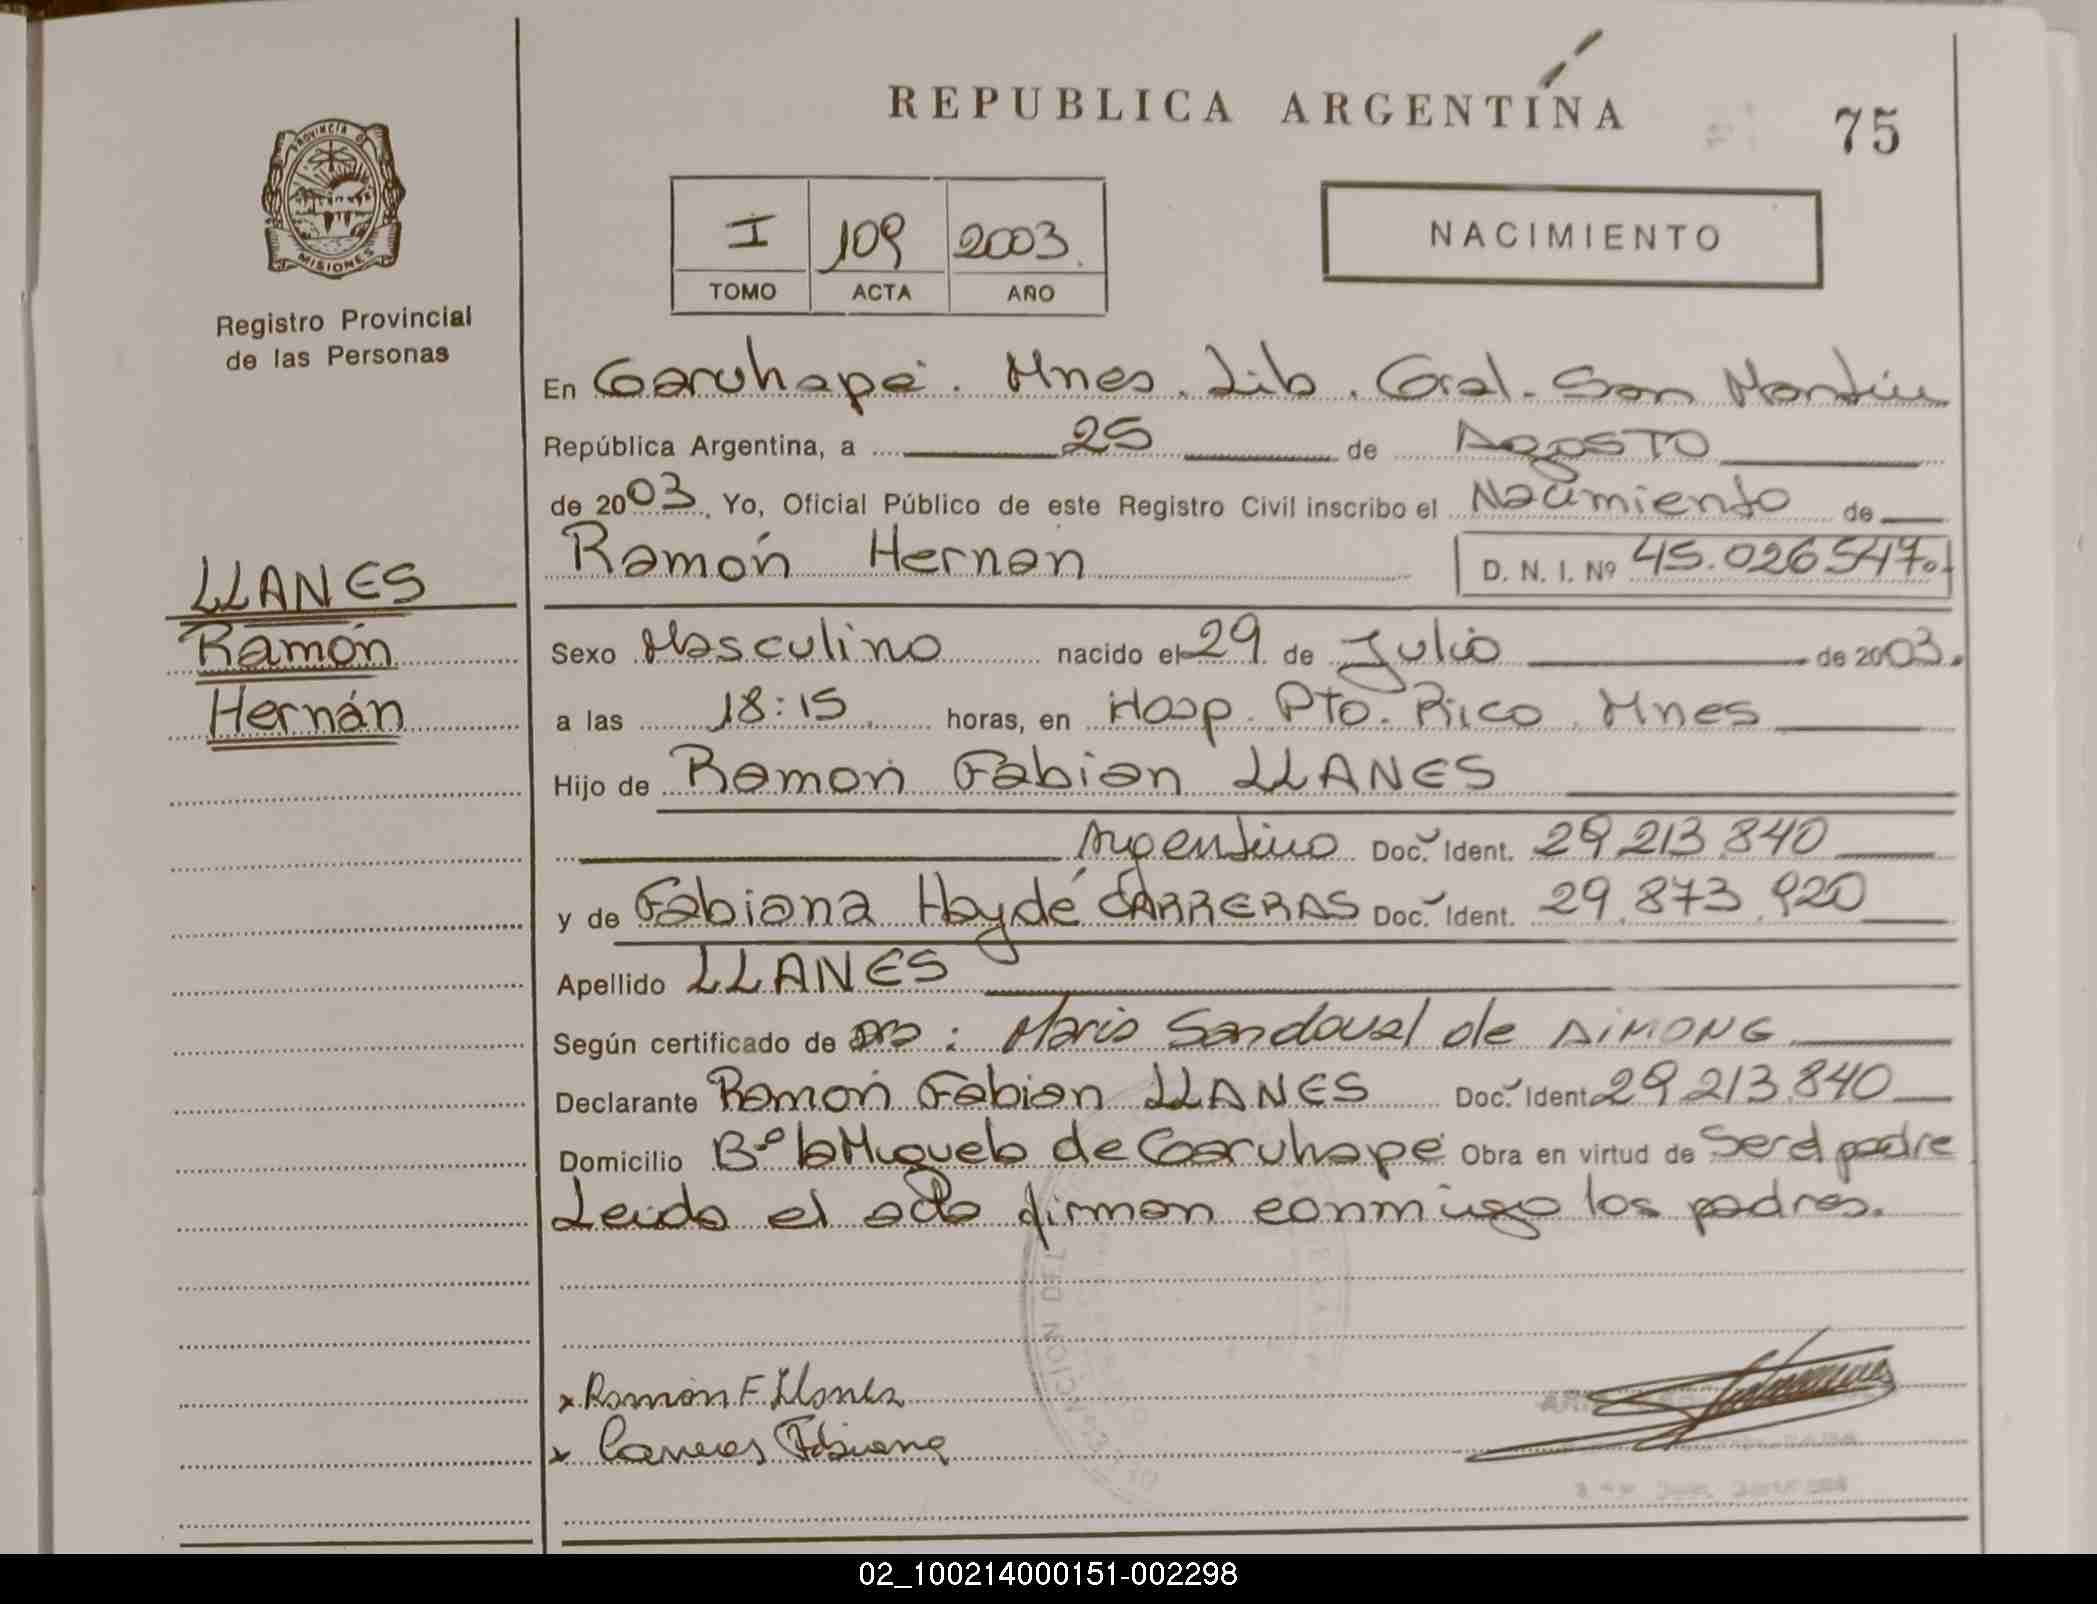 REPUBLICA ARGENTINA
75
PROVINCIA DE
MISIONES
Registro Provincial
de las Personas
I 109 2003.
TOMO ACTA AÑO
NACIMIENTO
En Garuhapé. Mnes. Lib. Gral. San Martín
República Argentina, a 25 de Agosto
de 2003. Yo, Oficial Público de este Registro Civil inscribo el Nacimiento de
Ramón Hernan D. N. I. Nº 45.026547.
LLANES
Ramón
Hernán
Sexo Masculino nacido el 29 de Julio de 2003.
a las 18:15 horas, en Hosp. Pto. Rico. Mnes
Hijo de Ramón Fabian LLANES
Argentino Doc. Ident. 29.213.840
y de Fabiana Haydé CARRERAS Doc. Ident. 29.873.920
Apellido LLANES
Según certificado de : Maria Sandoval de AIMONG
Declarante Ramón Fabian LLANES Doc. Ident. 29.213.840
Domicilio Bº la Miguela de Garuhapé Obra en virtud de Ser el padre
Leida el acta firman conmigo los padres.
x Ramón F. Llanes
x Carreras Fabiana
02_100214000151-002298